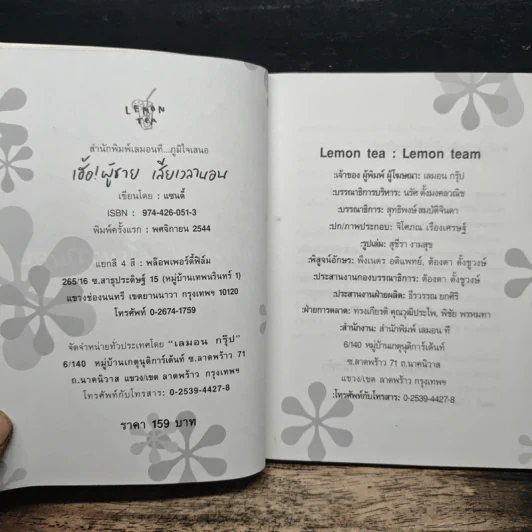 LEMON
TEA
สำนักพิมพ์เลมอนที...ภูมิใจเสนอ
เฮ้อ! ผู้ชาย เสียเวลานอน
เขียนโดย : แซนดี้
ISBN : 974-426-051-3
พิมพ์ครั้งแรก : พฤศจิกายน 2544
แยกสี 4 สี : พลอพเพอร์ตี้ฟิล์ม
265/16 ซ.สาธุประดิษฐ์ 15 (หมู่บ้านเทพนรินทร์ 1)
แขวงช่องนนทรี เขตยานนาวา กรุงเทพฯ 10120
โทรศัพท์ 0-2674-1759
จัดจำหน่ายทั่วประเทศโดย "เลมอน กรุ๊ป"
6/140 หมู่บ้านเกตุนุติการ์เด้นท์ ซ.ลาดพร้าว 71
ถ.นาคนิวาส แขวง/เขต ลาดพร้าว กรุงเทพฯ
โทรศัพท์กับโทรสาร: 0-2539-4427-8
ราคา 159 บาท
Lemon tea : Lemon team
:เจ้าของ ผู้พิมพ์ ผู้โฆษณา: เลมอน กรุ๊ป
:บรรณาธิการบริหาร: นรัศ ตั้งมงคลวณิช
:บรรณาธิการ: สุทธิพงษ์ สมบัติจินดา
:ปก/ภาพประกอบ: จิโศภณ เรืองเศรษฐ์
:รูปเล่ม: สุชีรา งามสุข
:พิสูจน์อักษร: พึงเนตร อติแพทย์, ต้องตา ตั้งชูวงษ์
:ประสานงานกองบรรณาธิการ: ต้องตา ตั้งชูวงษ์
:ประสานงานฝ่ายผลิต: ธีรวรรณ ยกศิริ
:ฝ่ายการตลาด: ทรงเกียรติ คุณวุฒิประไพ, พิชัย พรหมทา
:สำนักงาน: สำนักพิมพ์ เลมอน ที
6/140 หมู่บ้านเกตุนุติการ์เด้นท์
ซ.ลาดพร้าว 71 ถ.นาคนิวาส
แขวง/เขต ลาดพร้าว กรุงเทพฯ
:โทรศัพท์กับโทรสาร: 0-2539-4427-8